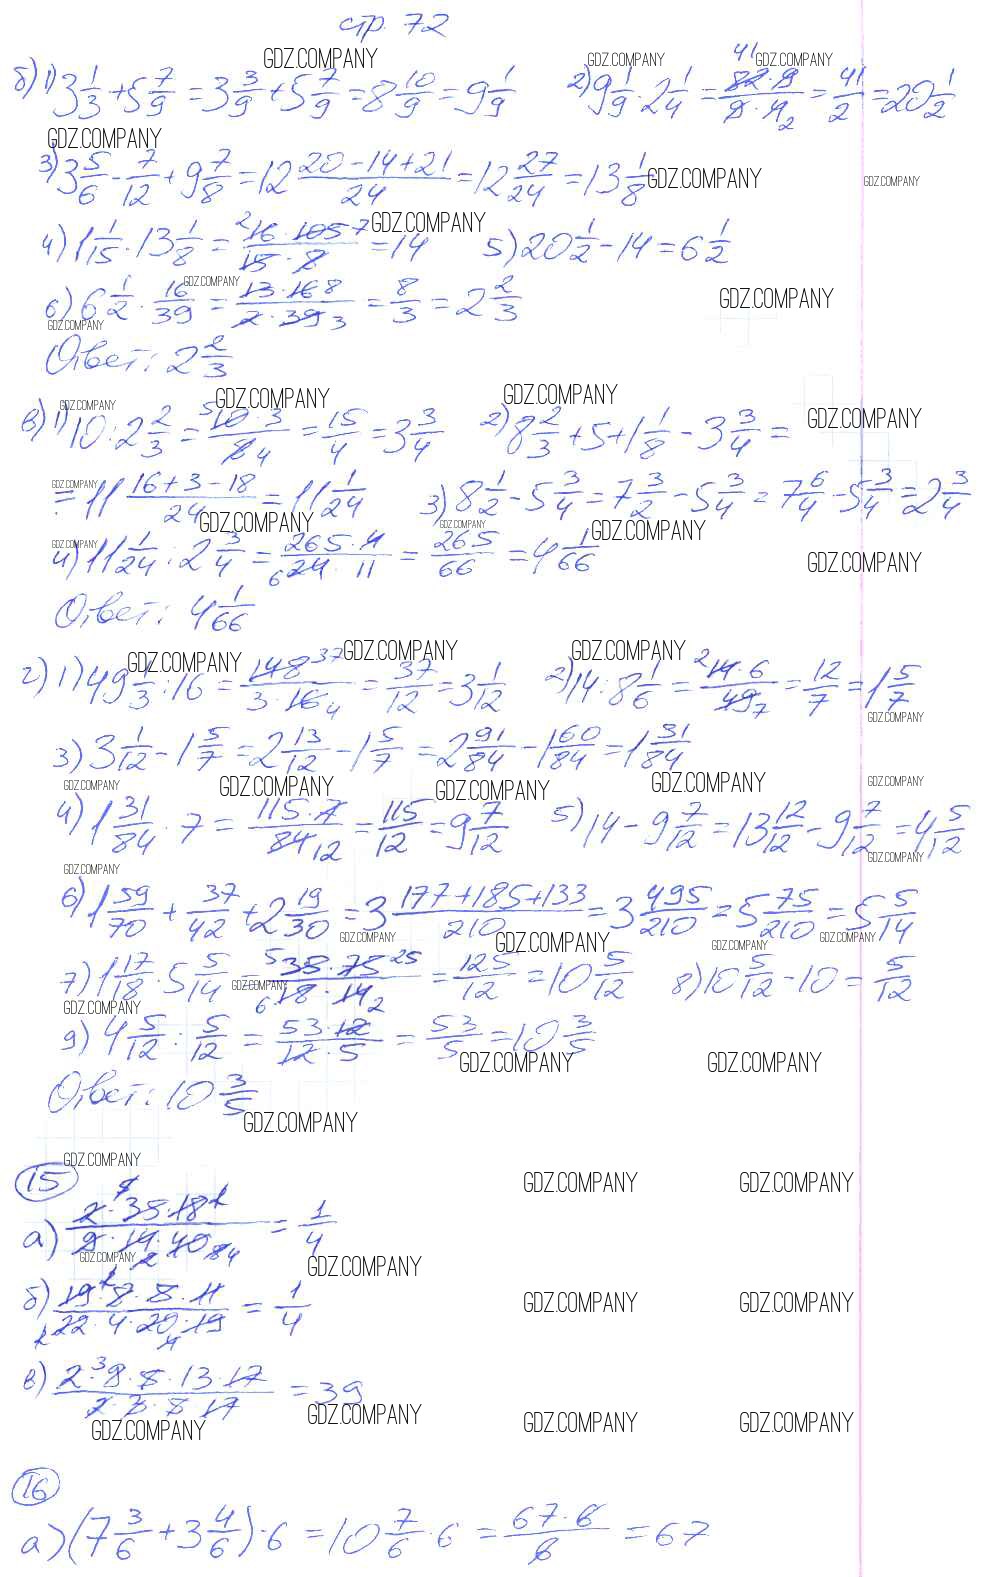 стр. 72
б) 1) 3 1/3 + 5 7/9 = 3 3/9 + 5 7/9 = 8 10/9 = 9 1/9   2) 9 1/9 · 2 1/4 = 82 · 9 / 9 · 4 = 41/2 = 20 1/2
3) 3 5/6 - 7/12 + 9 7/8 = 12 20 - 14 + 21 / 24 = 12 27/24 = 13 1/8
4) 1 1/15 · 13 1/8 = 16 · 105 / 15 · 8 = 14   5) 20 1/2 - 14 = 6 1/2
6) 6 1/2 · 16/39 = 13 · 16 / 2 · 39 = 8/3 = 2 2/3
Ответ: 2 2/3
в) 1) 10 : 2 2/3 = 10 · 3 / 8 = 15/4 = 3 3/4   2) 8 2/3 + 5 + 1 1/8 - 3 3/4 =
= 11 16 + 3 - 18 / 24 = 11 1/24   3) 8 1/2 - 5 3/4 = 7 3/2 - 5 3/4 = 7 6/4 - 5 3/4 = 2 3/4
4) 11 1/24 : 2 3/4 = 265 · 4 / 24 · 11 = 265/66 = 4 1/66
Ответ: 4 1/66
г) 1) 49 1/3 : 16 = 148 / 3 · 16 = 37/12 = 3 1/12   2) 14 : 8 1/6 = 14 · 6 / 49 = 12/7 = 1 5/7
3) 3 1/12 - 1 5/7 = 2 13/12 - 1 5/7 = 2 91/84 - 1 60/84 = 1 31/84
4) 1 31/84 · 7 = 115 · 7 / 84 = 115/12 = 9 7/12   5) 14 - 9 7/12 = 13 12/12 - 9 7/12 = 4 5/12
6) 1 59/70 + 37/42 + 2 19/30 = 3 177 + 185 + 133 / 210 = 3 495/210 = 5 75/210 = 5 5/14
7) 1 17/18 · 5 5/14 = 35 · 75 / 18 · 14 = 125/12 = 10 5/12   8) 10 5/12 - 10 = 5/12
9) 4 5/12 : 5/12 = 53 · 12 / 12 · 5 = 53/5 = 10 3/5
Ответ: 10 3/5
15
а) 2 · 35 · 18 / 9 · 14 · 40 = 1/4
б) 19 · 8 · 5 · 11 / 22 · 4 · 20 · 19 = 1/4
в) 2 · 9 · 8 · 13 · 17 / 2 · 3 · 8 · 17 = 39
16
а) (7 3/6 + 3 4/6) · 6 = 10 7/6 · 6 = 67 · 6 / 6 = 67
GDZ.COMPANY